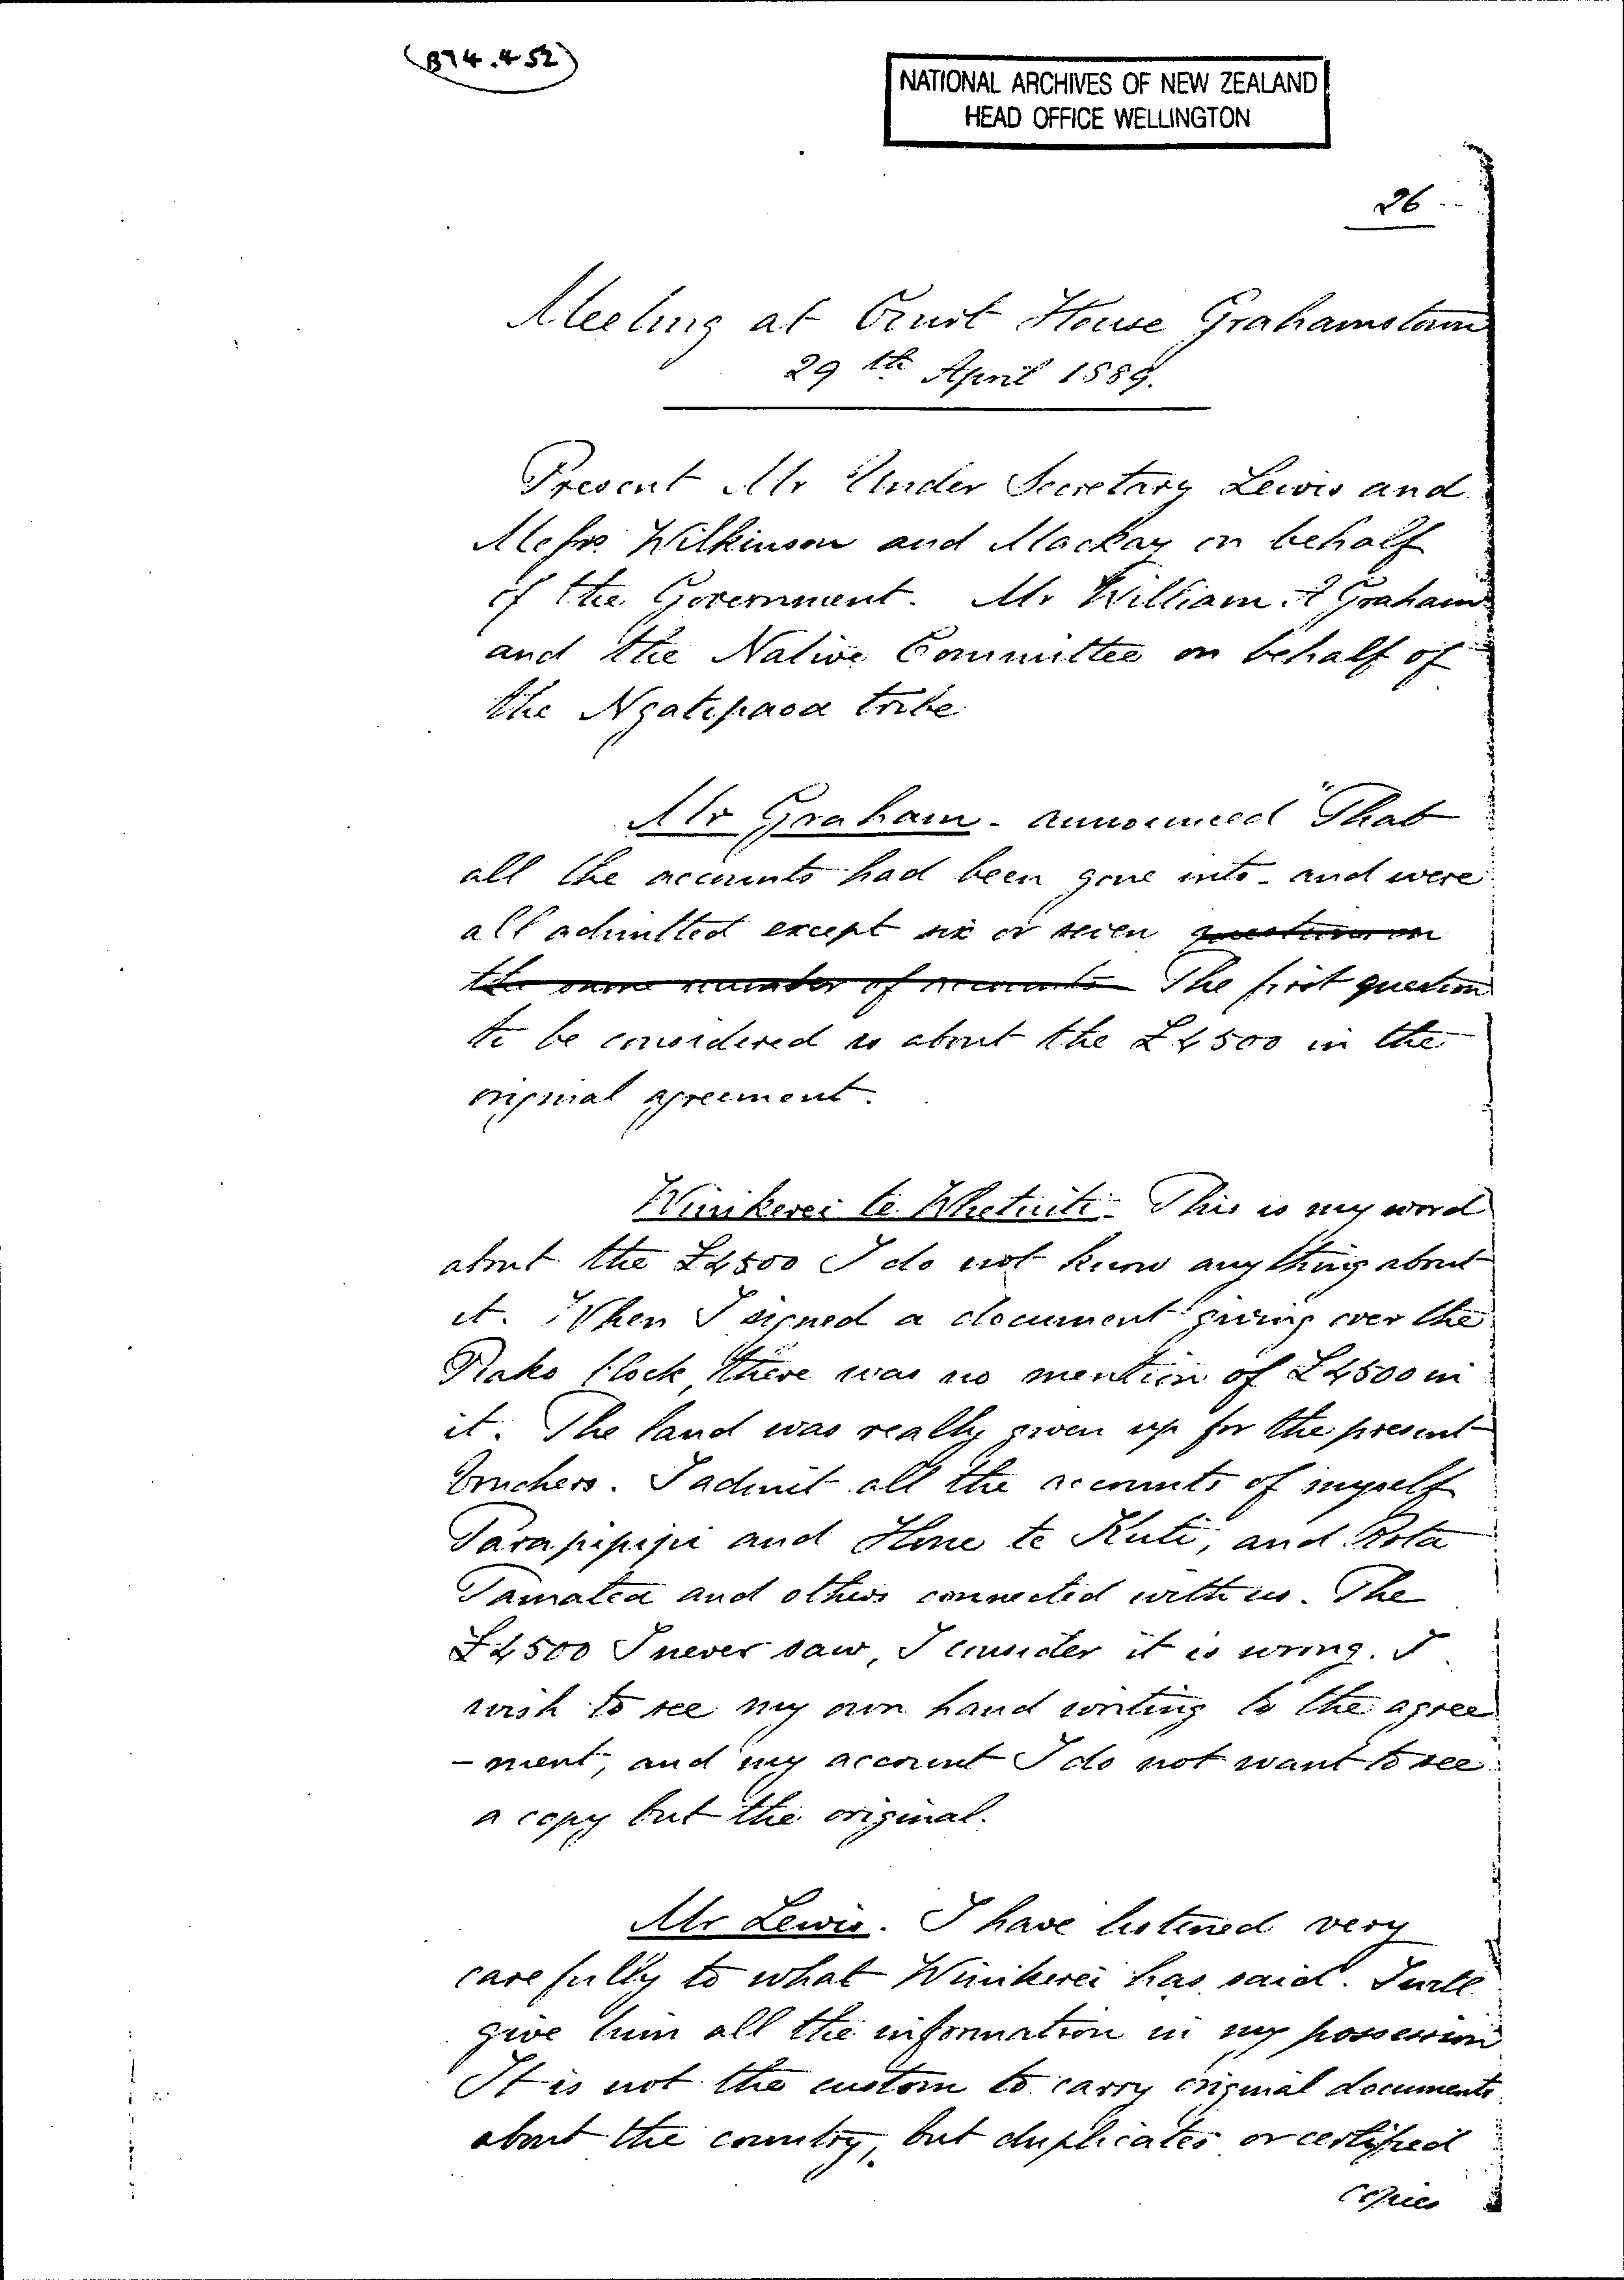 (B74.452)
NATIONAL ARCHIVES OF NEW ZEALAND
HEAD OFFICE WELLINGTON
26
Meeting at Court House Grahamstown
29th April 1889.
Present Mr Under Secretary Lewis and
Messrs Wilkinson and Mackay on behalf
of the Government. Mr William A Graham
and the Native Committee on behalf of
the Ngatipaoa tribe
Mr Graham - announced "That
all the accounts had been gone into - and were
all admitted except six or seven questions on
the same number of accounts The first question
to be considered is about the £4500 in the
original agreement.
Winikerei te Whetuiti - This is my word
about the £4500 I do not know anything about
it. When I signed a document giving over the
Piako Block, there was no mention of £4500 in
it. The land was really given up for the present
vouchers. I admit all the accounts of myself
Tarapipipi and Hone te Kuti, and Rota
Tamatea and others connected with us. The
£4500 I never saw, I consider it is wrong. I
wish to see my own hand writing to the agree
-ment, and my account I do not want to see
a copy but the original.
Mr Lewis. I have listened very
carefully to what Winikerei has said. I will
give him all the information in my possession
It is not the custom to carry original documents
about the country, but duplicates or certified
copies